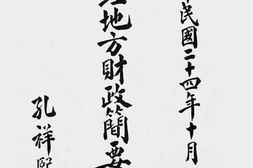 民國二十四年十月
地方財政簡要
孔祥熙